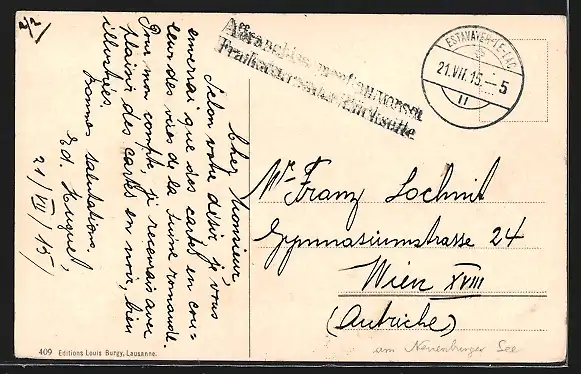 2/2
Affranchies
Frankaturseite Rückseite
ESTAVAYER-LE-LAC
21.VII.15.-5
Cher Monsieur,
Selon votre désir je vous
enverrai que des cartes en cou=
leur des vues de la Suisse romande.
Pour mon compte, je recevrais avec
plaisir des cartes en noir, bien
illustrées.
bonnes salutations.
Ed. Huguet,
21/VII/15/
Mr Franz Lochnit
Gymnasiumstrasse 24
Wien XVIII
(Autriche)
am Neuenburger See
409 Editions Louis Burgy, Lausanne.